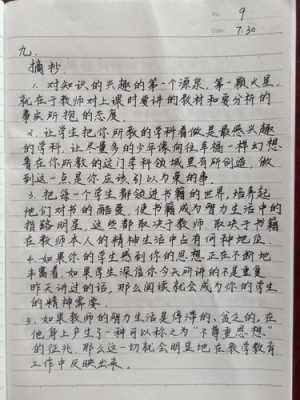 9
7.30
九.
摘抄
1. 对知识的兴趣的第一个源泉、第一颗火星,
就在于教师对上课时要讲的教材和要分析的
事实所抱的态度。
2. 让学生把你所教的学科看做是最感兴趣
的学科,让尽量多的少年像向往幸福一样幻想
着在你所教的这门学科领域里有所创造,做
到这一点是你应该引以为荣的事。
3. 把每一个学生都领进书籍的世界,培养起
他们对书的酷爱,使书籍成为智力生活中的
指路明星,这些都取决于教师,取决于书籍
在教师本人的精神生活中占有何种地位。
4. 如果你的学生感到你的思想正在不断地
丰富着,如果学生深信你今天所讲的不是重复
昨天讲过的话,那么阅读就会成为你的学生
的精神需要。
5. 如果教师的智力生活是停滞的、贫乏的,在
他身上产生了一种可以称之为“不尊重思想”
的征兆,那么这一切就会明显地在教学教育
工作中反映出来。